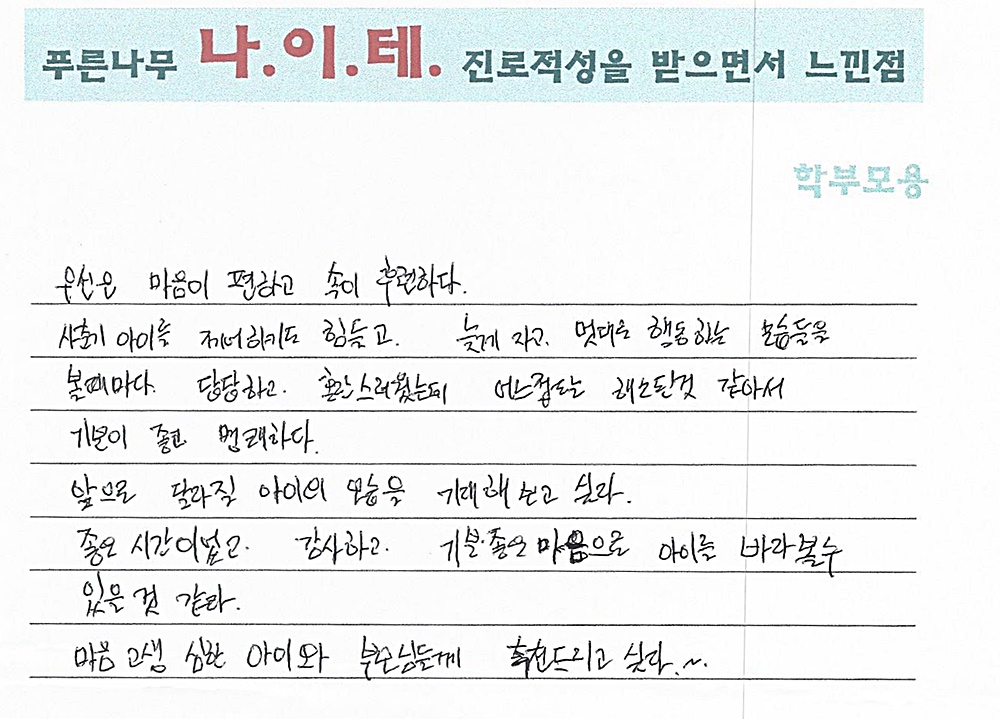 푸른나무 나.이.테. 진로적성을 받으면서 느낀점
학부모용
우선은 마음이 편하고 속이 후련하다.
사춘기 아이를 제어하기도 힘들고. 늦게 자고. 멋대로 행동하는 모습들을
볼때마다. 답답하고. 혼란스러웠는데 어느정도는 해소된것 같아서
기분이 좋고 명쾌하다.
앞으로 달라질 아이의 모습을 기대해 보고 싶다.
좋은 시간이였고. 감사하고. 기분·좋은 마음으로 아이를 바라볼수
있을 것 같다.
마음 고생 심한 아이와 부모님들께 추천드리고 싶다.~.